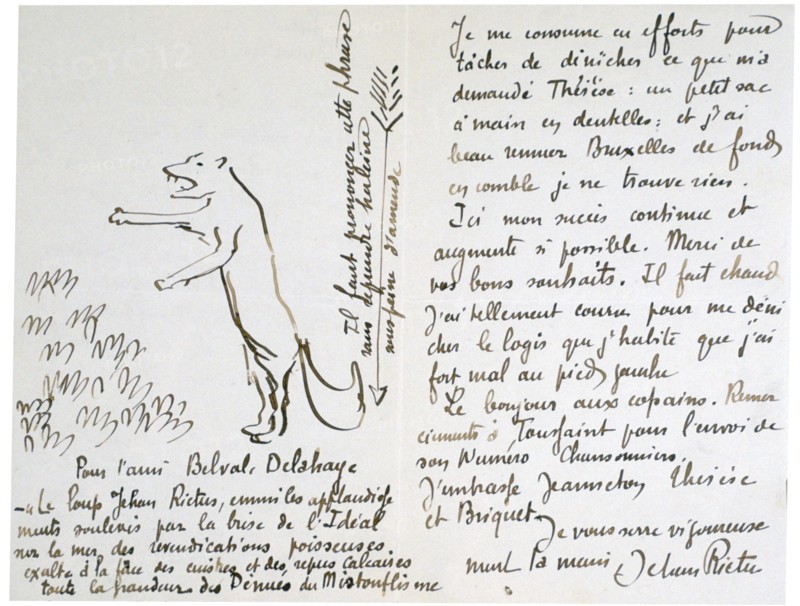 Il faut prononcer cette phrase
sans reprendre haleine
sous peine d'amende
Pour l'ami Belval-Delahaye
-« Le loup Jehan Rictus, emmi les applaudisse
ments soulevés par la brise de l'Idéal
sur la mer des revendications poisseuses,
exalte à la face des cuistres et des repus Calcaires
toute la grandeur des Dénués du Mistouflisme
Je me consume en efforts pour
tâcher de dénicher ce que m'a
demandé Thérèse : un petit sac
à main en dentelles ; et j'ai
beau remuer Bruxelles de fond
en comble je ne trouve rien.
Ici mon succès continue et
augmente si possible. Merci de
vos bons souhaits. Il fait chaud
J'ai tellement couru pour me déni
cher le logis que j'habite que j'ai
fort mal au pied gauche
Le bonjour aux copains. Remer
ciements à Toussaint pour l'envoi de
son Numéro Chansonniers.
J'embrasse Jeanneton Thérèse
et Briquet.
Je vous serre vigoureuse
ment la main Jehan Rictus